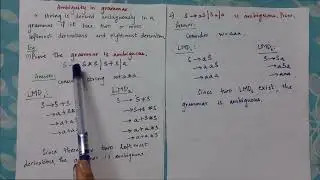 Ambiguity in grammar
* string is derived ambiguously in a
grammar if it has two or more
leftmost derivations and rightmost derivation.
Ex:
1) Prove the grammar is ambiguous.
S → S * S | S + S | a
Answer:
Consider string w = a+a*a
LMD1
LMD2
S → S + S
→ a + S
→ a + S * S
→ a + a * S
→ a + a * a
S → S * S
→ S + S * S
→ a + S * S
→ a + a * S
→ a + a * a
Since there are two left most
derivations the grammar is ambiguous
2) S → aS | Sa | a is ambiguous, Prove.
Answer:
Consider w = aaa.
LMD1
S → aS
→ aaS
→ aaa
LMD2
S → Sa
→ aSa
→ aaa
Since two LMD's exist, the
grammar is ambiguous.